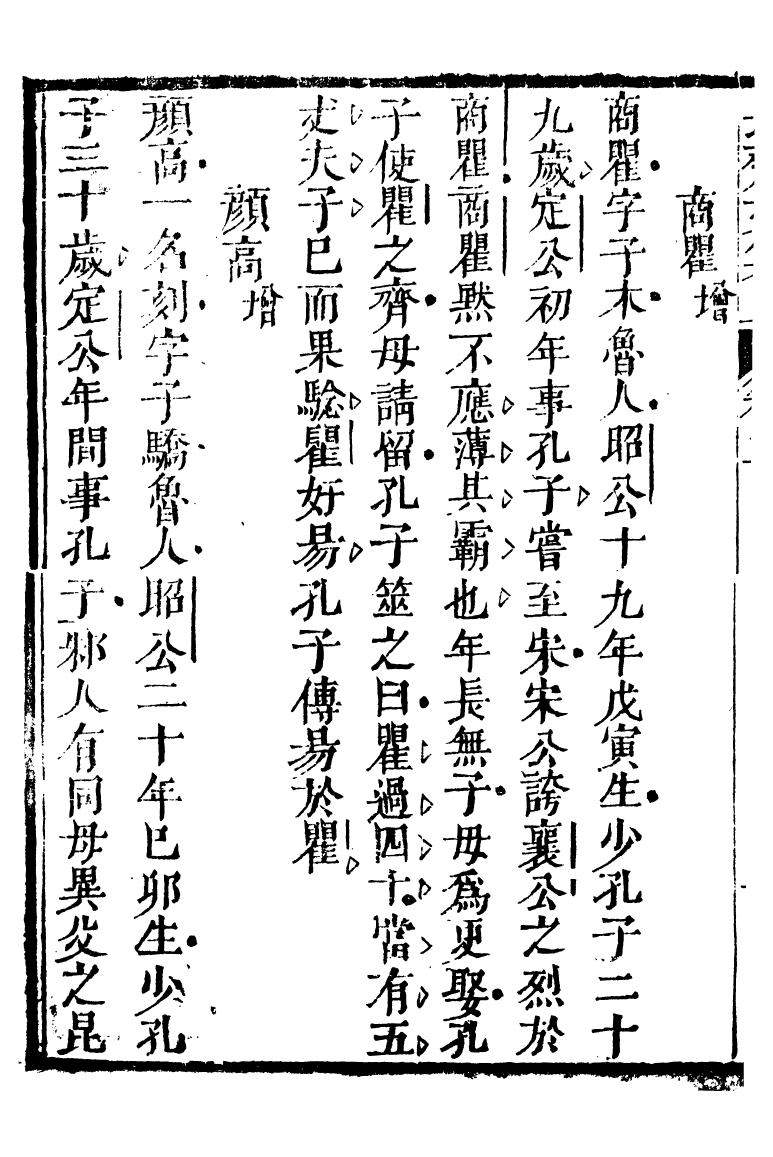 商瞿增
商瞿字子木魯人昭公十九年戊寅生少孔子二十
九歲定公初年事孔子嘗至宋宋公誇襄公之烈於
商瞿商瞿默不應薄其霸也年長無子母爲更娶孔
子使瞿之齊母請留孔子筮之曰瞿過四十當有五
丈夫子已而果驗瞿好易孔子傳易於瞿
顔高增
顔高一名刻字子驕魯人昭公二十年已卯生少孔
子三十歲定公年間事孔子邾人有同母異父之昆